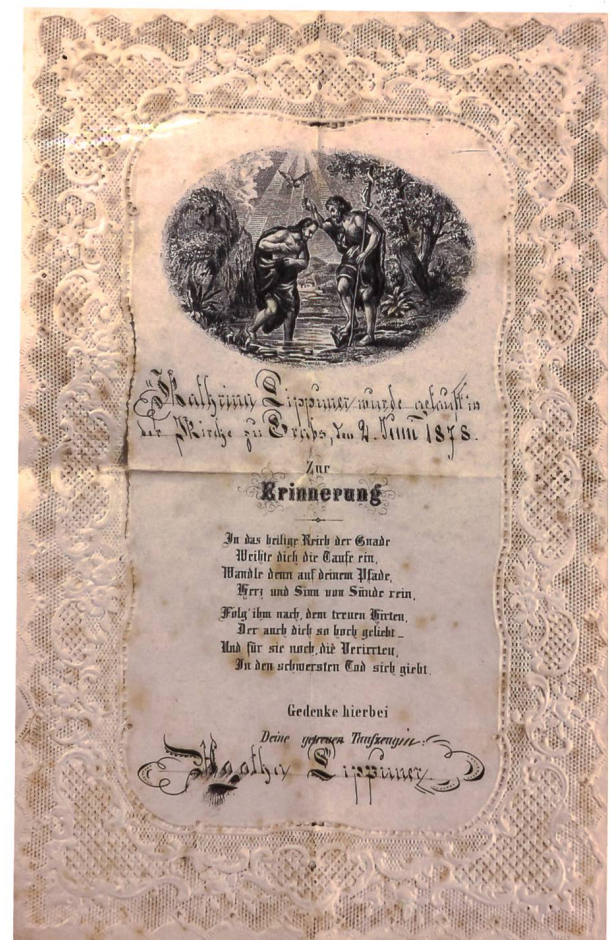 Kathrina Lippuner wurde getauft in
der Kirche zu Grabs, den 2. Juni 1878.
Zur
Erinnerung
In das heilige Reich der Gnade
Weihte dich die Taufe ein,
Wandle denn auf deinem Pfade,
Herz und Sinn von Sünde rein,
Folg' ihm nach, dem treuen Hirten,
Der auch dich so hoch geliebt _
Und für sie noch, die Verirrten,
In den schwersten Tod sich giebt.
Gedenke hierbei
Deine getreuen Taufzeugin:
Agatha Lippuner